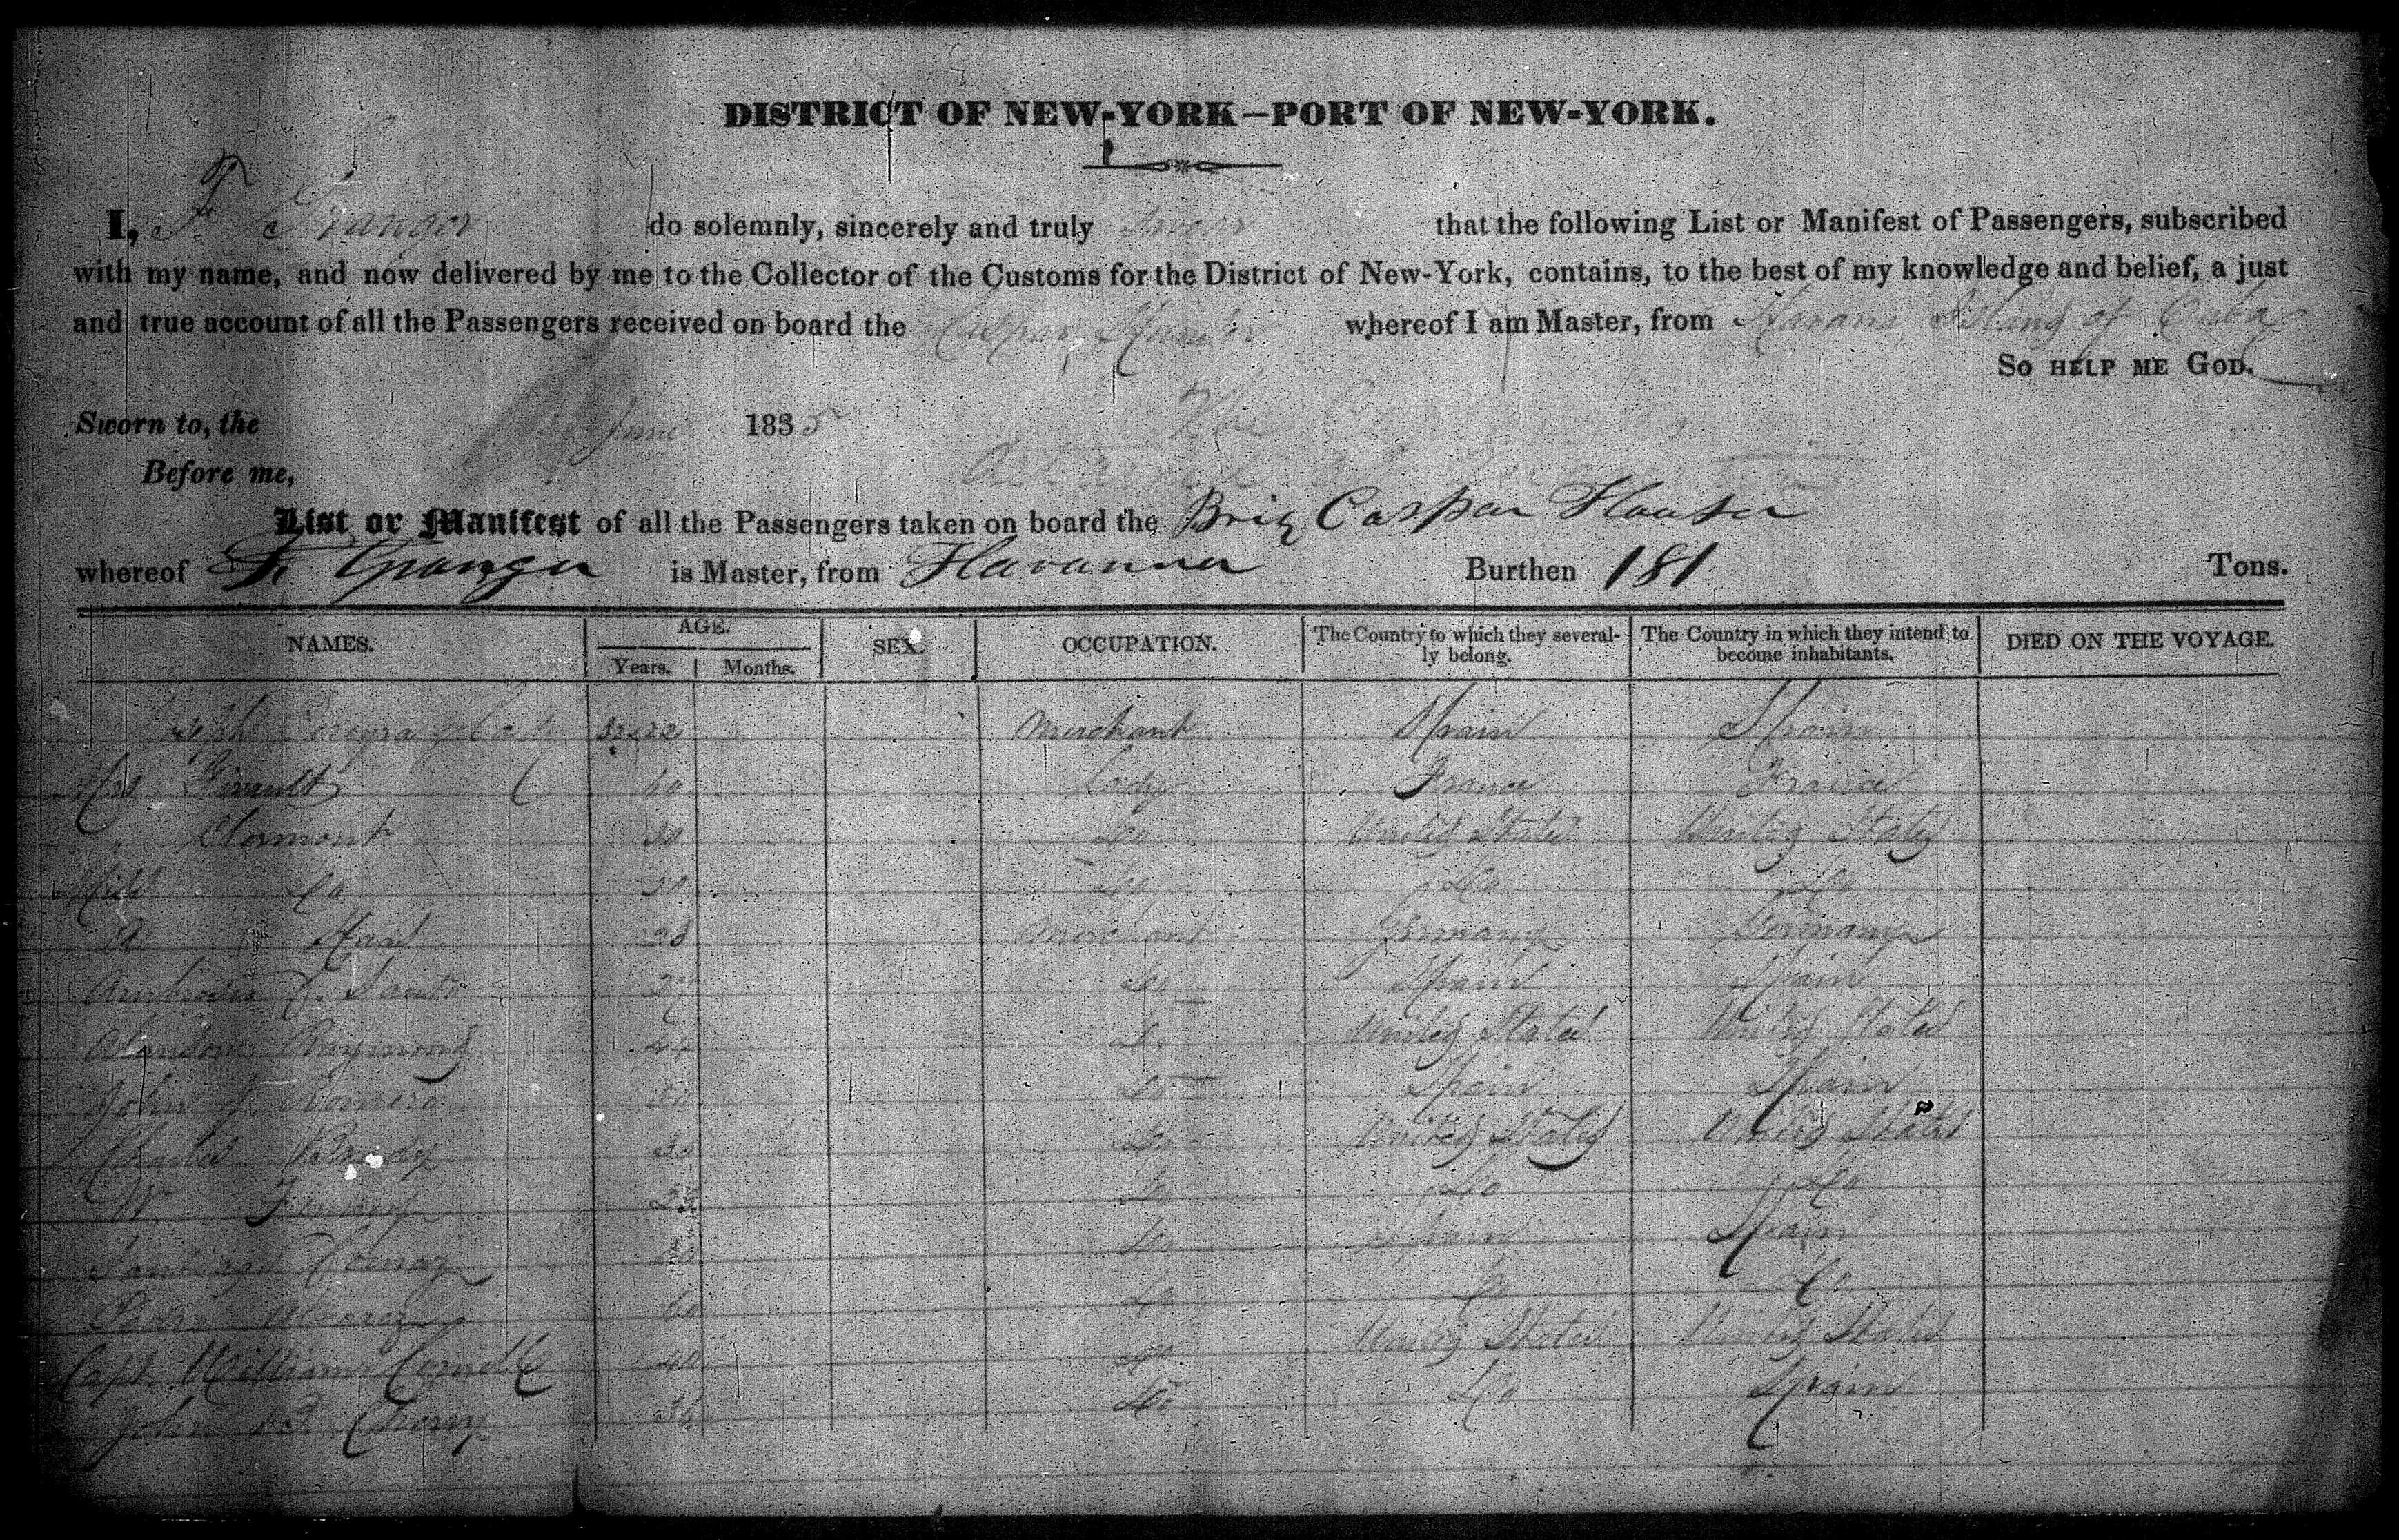 DISTRICT OF NEW-YORK—PORT OF NEW-YORK.
I, F. Granger do solemnly, sincerely and truly swear that the following List or Manifest of Passengers, subscribed
with my name, and now delivered by me to the Collector of the Customs for the District of New-York, contains, to the best of my knowledge and belief, a just
and true account of all the Passengers received on board the Caspar Hauser whereof I am Master, from Havana Island of Cuba
So HELP ME GOD.
Sworn to, the June 1835 The
Before me,
List or Manifest of all the Passengers taken on board the Brig Caspar Hauser
whereof F. Granger is Master, from Havanna Burthen 181 Tons.
NAMES. AGE. SEX. OCCUPATION. The Country to which they several- The Country in which they intend to DIED ON THE VOYAGE.
Years. Months. ly belong. become inhabitants.
Pereyra 22 Merchant Spain Spain
Mrs Girault 60 Lady France France
" Clermont 30 Do United States United States
Miss Do Do Do Do
Merchant Germany Germany
J. Santo 27 Do Spain Spain
Raymond 44 Do United States United States
John J. Romera Do Spain Spain
Charles Brody 30 Do United States United States
W. Finney Do Do Do
Santiago Do Spain Spain
Pedro Alvarez 60 Do Do Do
Capt. William Cornell 40 Do United States United States
John B. 36 Do Do Spain